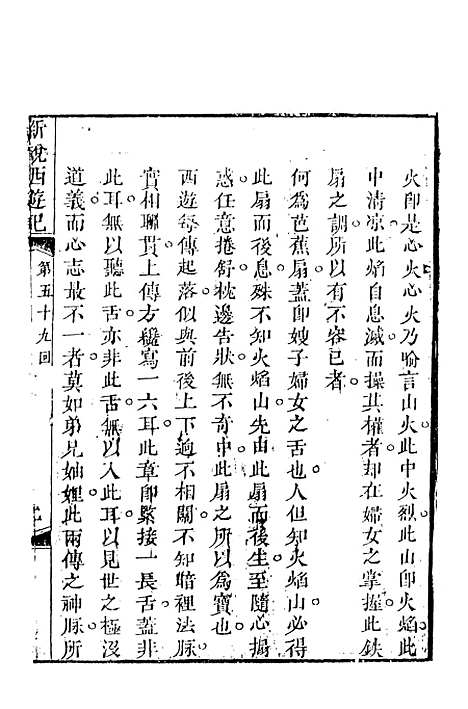 火卽是心火心火乃喻言山火此中火烈此山卽火焰此
中清凉此焰自息滅而操其權者却在婦女之掌握此鉄
扇之調所以有不容已者
何爲芭蕉扇蓋卽嫂子婦女之舌也人但知火焰山必得
此扇而後息殊不知火焰山先由此扇而後生至隨心搧
惑任意捲舒枕邊告狀無不奇中此扇之所以爲寶也
西遊每傳起落似與前後上下逈不相關不知暗裡法脉
實相聯貫上傳方纔寫一六耳此章卽緊接一長舌蓋非
此耳無以聽此舌亦非此舌無以入此耳以見世之極沒
道義而心志最不一者莫如弟兄妯娌此兩傳之神脉所
新說西遊記
第五十九回